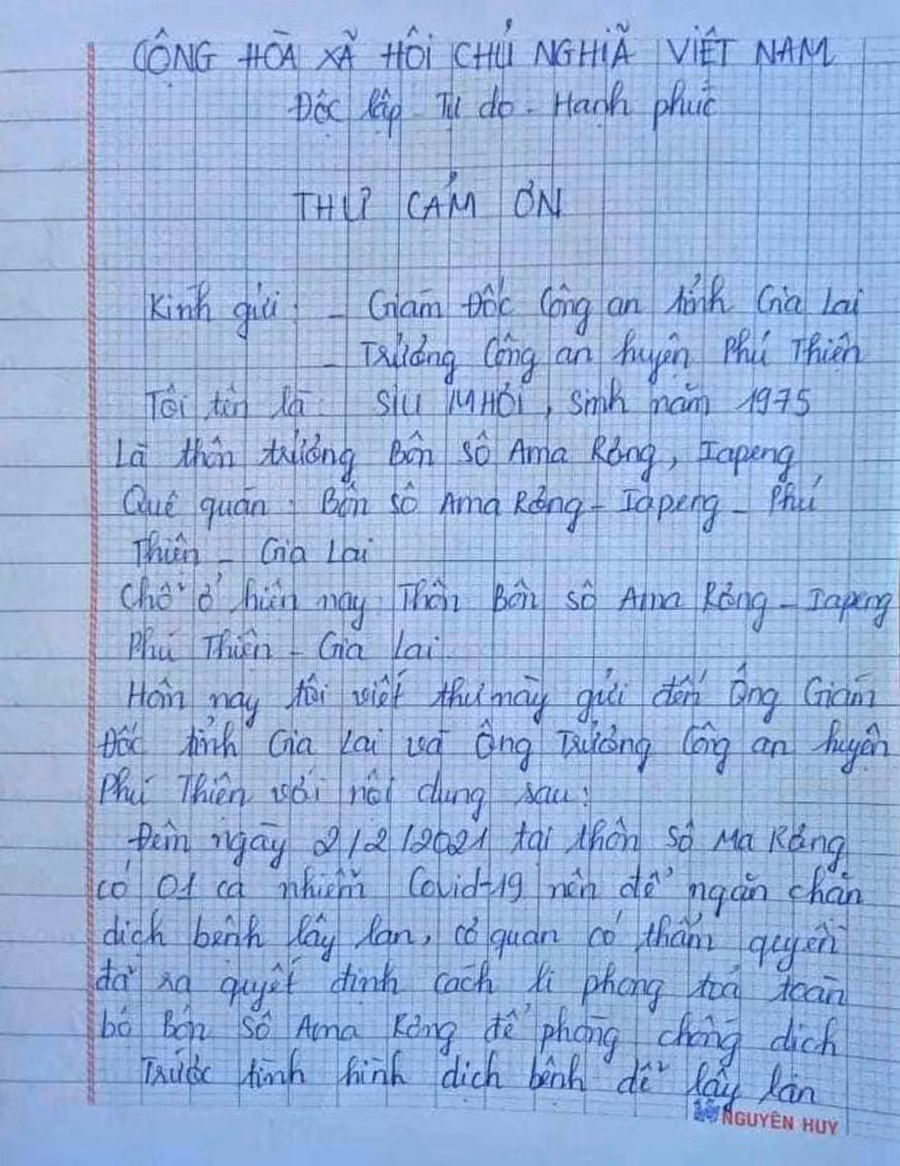 CỘNG HÒA XÃ HÔI CHỦ NGHIÃ VIÊT NAM
Độc lập - Tự do - Hạnh phúc
THƯ CẢM ƠN
Kinh gửi : - Giám Đốc Công an tỉnh Gia Lai
- Trưởng Công an huyện Phú Thiên
Tôi tên là : SIU MHỒI, sinh năm 1975
Là thôn trưởng Bôn Sô Ama Rông, Iapeng
Quê quán : Bôn Sô Ama Rông - Iapeng - Phú
Thiên - Gia Lai
Chỗ ở hiên nay Thôn Bôn sô Ama Rông - Iapeng
Phú Thiện - Gia Lai.
Hôm nay tôi viết thư này gửi đến Ông Giám
Đốc tỉnh Gia Lai và Ông Trưởng Công an huyện
Phú Thiên với nôi dung sau:
Đêm ngày 2/2/2021 tại thôn Sô Ma Rông
có 01 ca nhiễm Covid-19 nên để ngăn chăn
dich bênh lây lan, cơ quan có thẩm quyền
đã ra quyết đinh cách li phong toả toàn
bô Bôn Sô Ama Rông để phòng chống dich
Trước tình hình dịch bênh dễ lây lan
NGUYÊN HUY